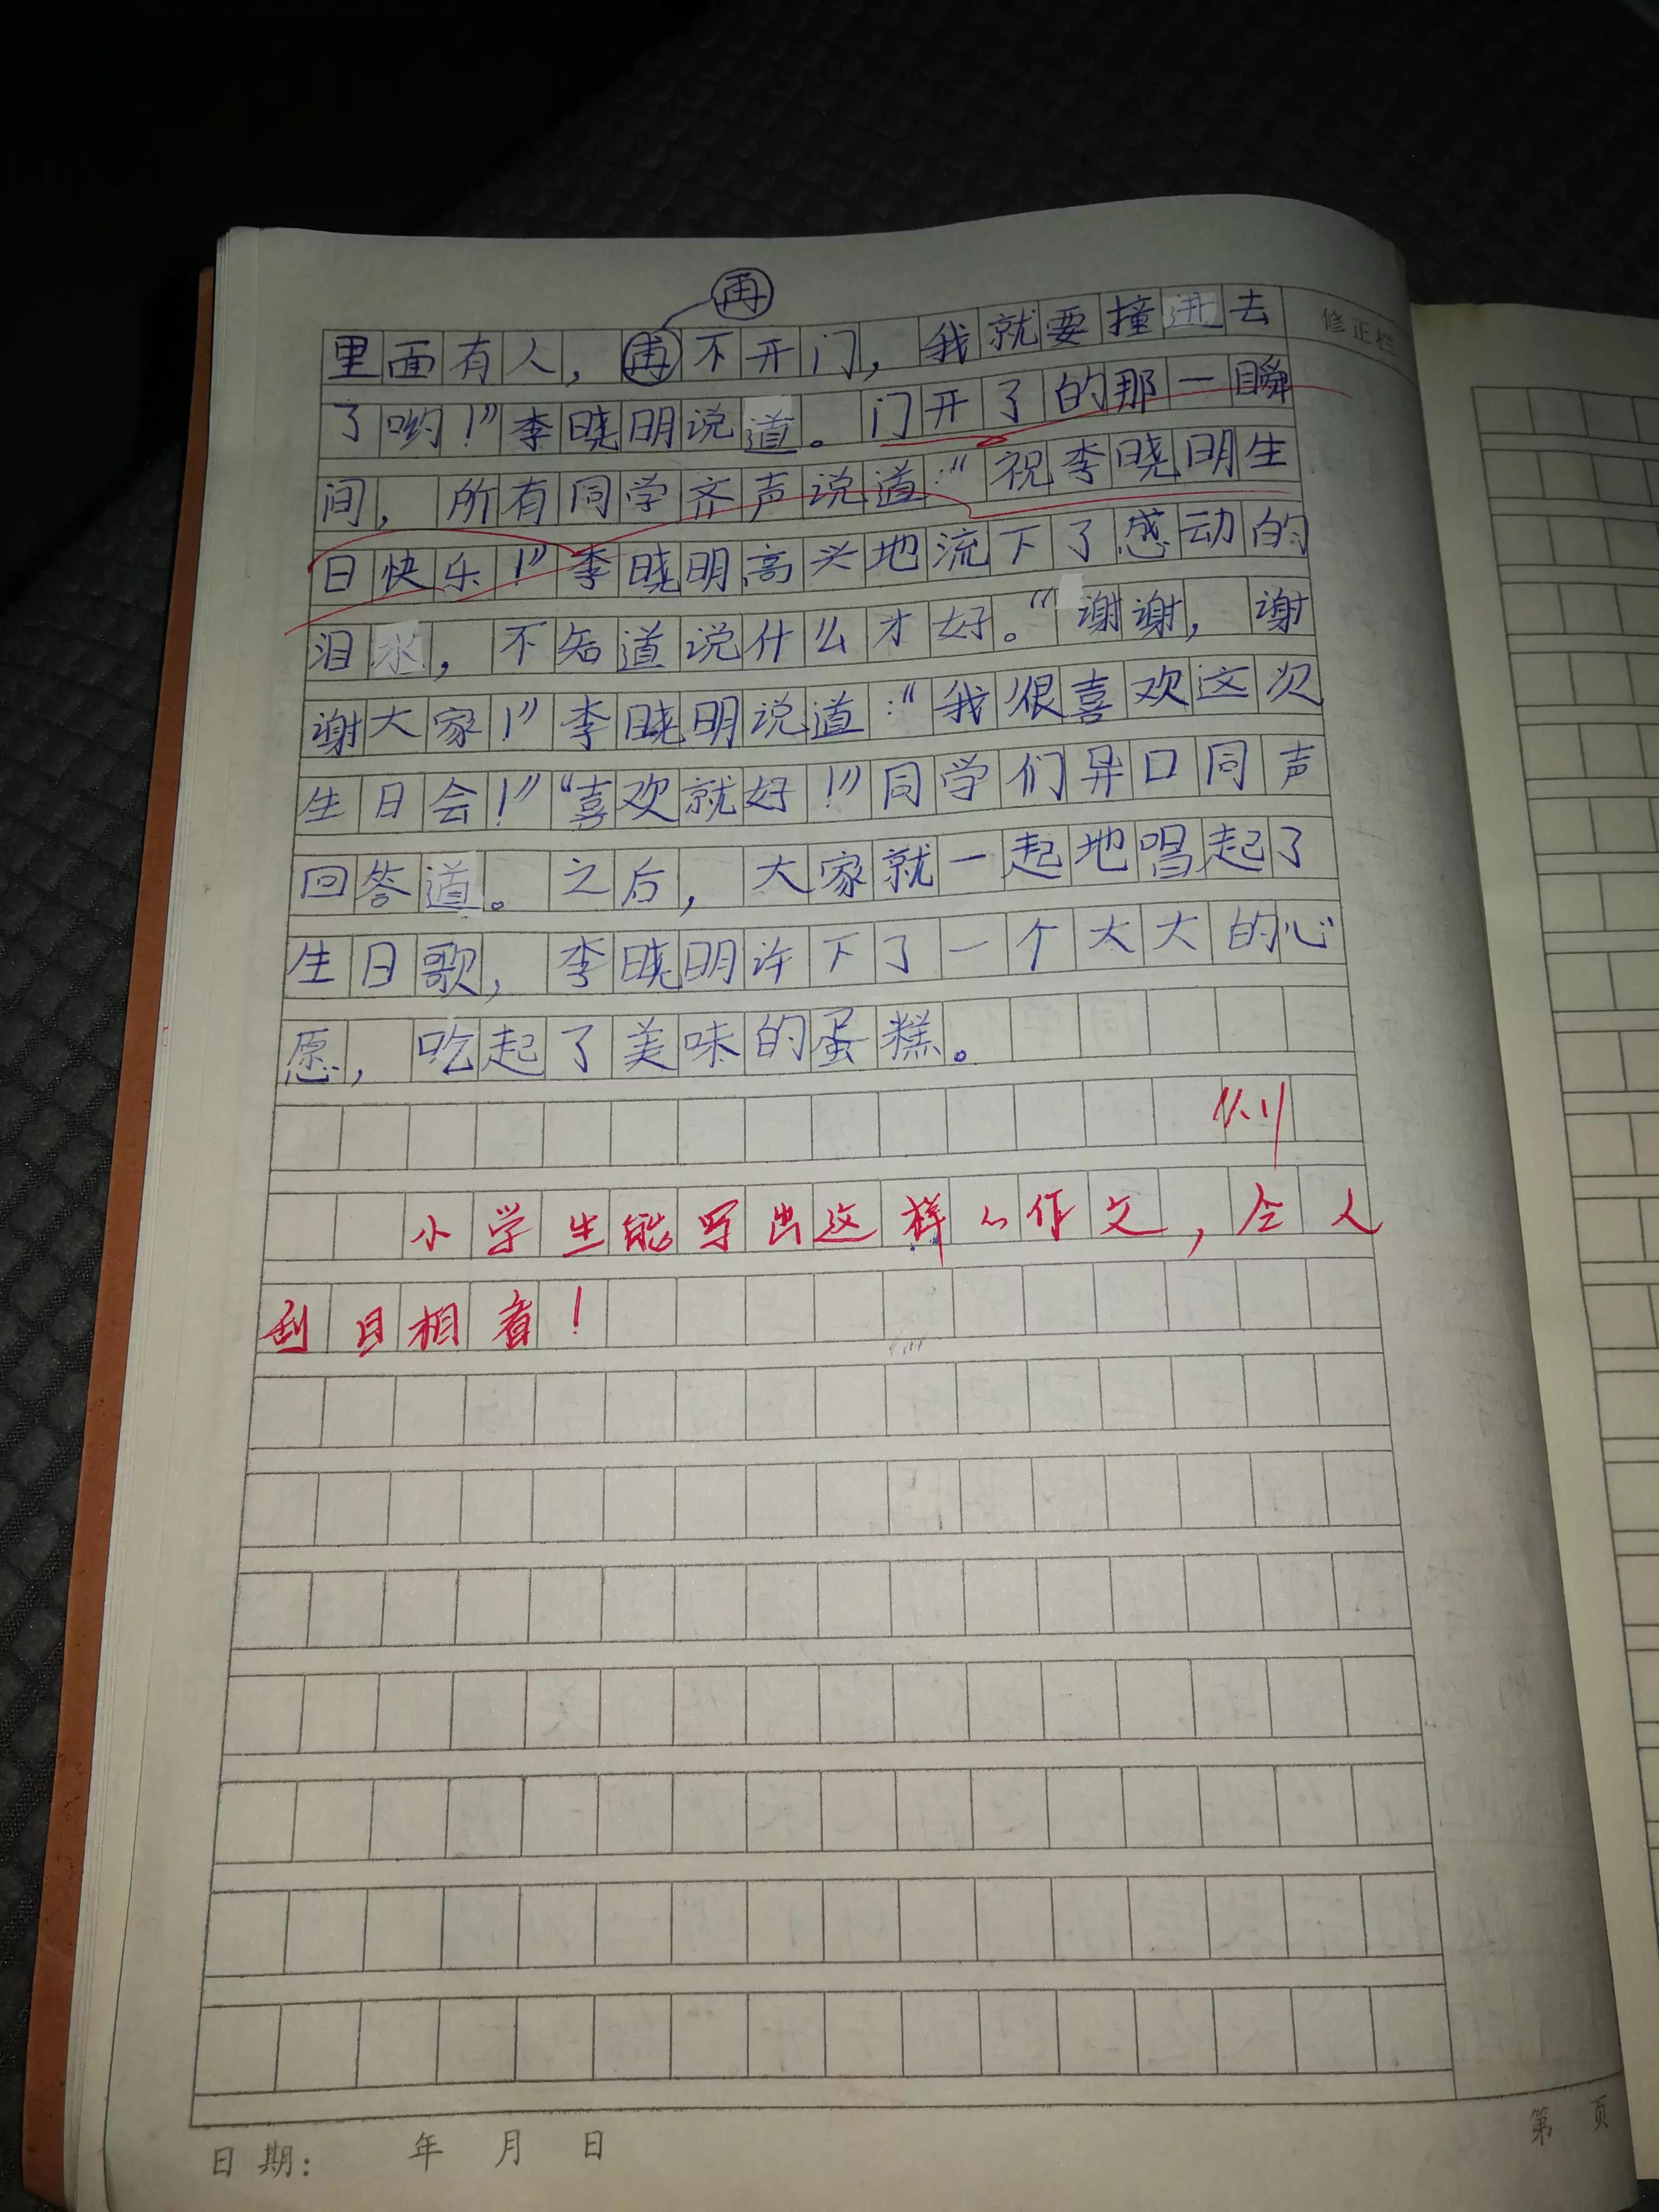 再
里面有人，再不开门，我就要撞进去
修正栏
了哟！”李晓明说道。门开了的那一瞬
间，所有同学齐声说道：“祝李晓明生
日快乐！”李晓明高兴地流下了感动的
泪水，不知道说什么才好。“谢谢，谢
谢大家！”李晓明说道：“我很喜欢这次
生日会！”“喜欢就好！”同学们异口同声
回答道。之后，大家就一起地唱起了
生日歌，李晓明许下了一个大大的心
愿，吃起了美味的蛋糕。
小学生能写出这样的作文，令人
刮目相看！
日期： 年 月 日
第 页